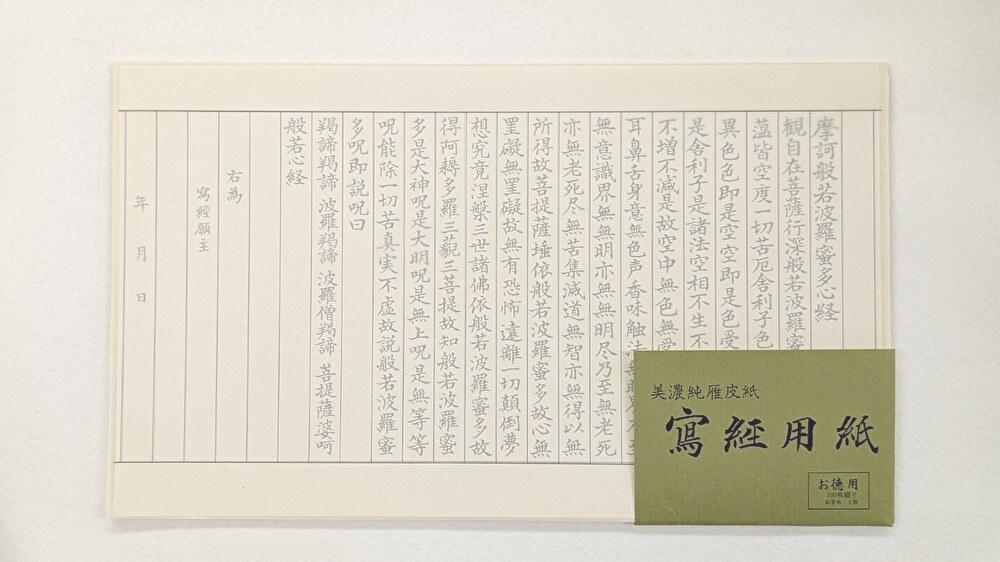 摩訶般若波羅蜜多心経
観自在菩薩行深般若波羅蜜
薀皆空度一切苦厄舎利子色
異色色即是空空即是色受
是舎利子是諸法空相不生不
不増不減是故空中無色無受
耳鼻舌身意無色声香味触法
無意識界無無明亦無無明尽乃至無老死
亦無老死尽無苦集滅道無智亦無得以無
所得故菩提薩埵依般若波羅蜜多故心無
罣礙無罣礙故無有恐怖遠離一切顛倒夢
想究竟涅槃三世諸佛依般若波羅蜜多故
得阿耨多羅三藐三菩提故知般若波羅蜜
多是大神呪是大明呪是無上呪是無等等
呪能除一切苦真実不虚故説般若波羅蜜
多呪即説呪曰
羯諦羯諦 波羅羯諦 波羅僧羯諦 菩提薩婆呵
般若心経
右為
寫經願主
年 月 日
美濃純雁皮紙
寫経用紙
お徳用
100枚綴り
お手本 1枚